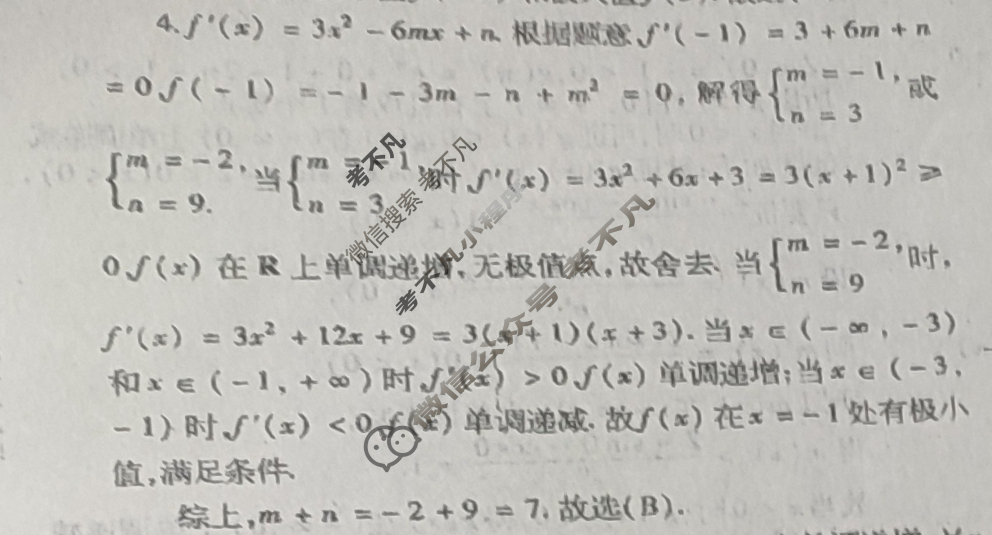 4. f′(x) = 3x² − 6mx + n. 根据题意 f′(−1) = 3 + 6m + n
= 0 f(−1) = −1 − 3m − n + m² = 0, 解得{m = −1, n = 3 或
{m = −2, n = 9. 当{m = −1, n = 3 时 f′(x) = 3x² + 6x + 3 = 3(x + 1)² ⩾
0 f(x) 在 R 上单调递增, 无极值点, 故舍去. 当{m = −2, n = 9 时,
f′(x) = 3x² + 12x + 9 = 3(x + 1)(x + 3). 当 x ∈ (−∞, −3)
和 x ∈ (−1, +∞) 时 f′(x) > 0 f(x) 单调递增; 当 x ∈ (−3,
−1) 时 f′(x) < 0 f(x) 单调递减. 故 f(x) 在 x = −1 处有极小
值, 满足条件.
综上, m + n = −2 + 9 = 7. 故选(B).
考不凡
微信搜索 考不凡
考不凡小程序
微信公众号 考不凡